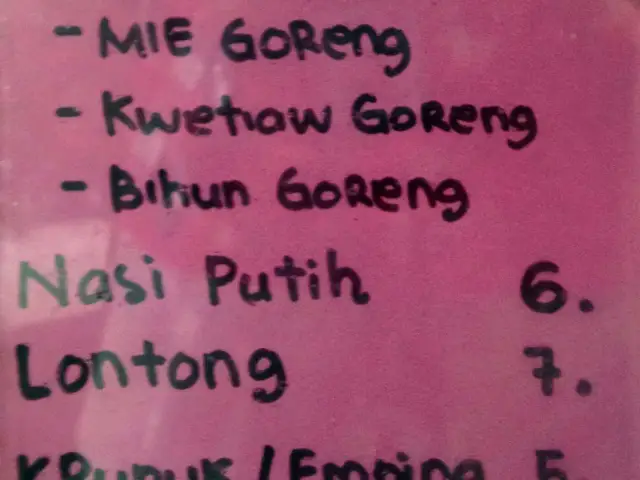 - MIE GoReng
- Kwetiaw GoReng
- Bihun GoReng
Nasi Putih 6.
Lontong 7.
KRupuk / Emping 5.